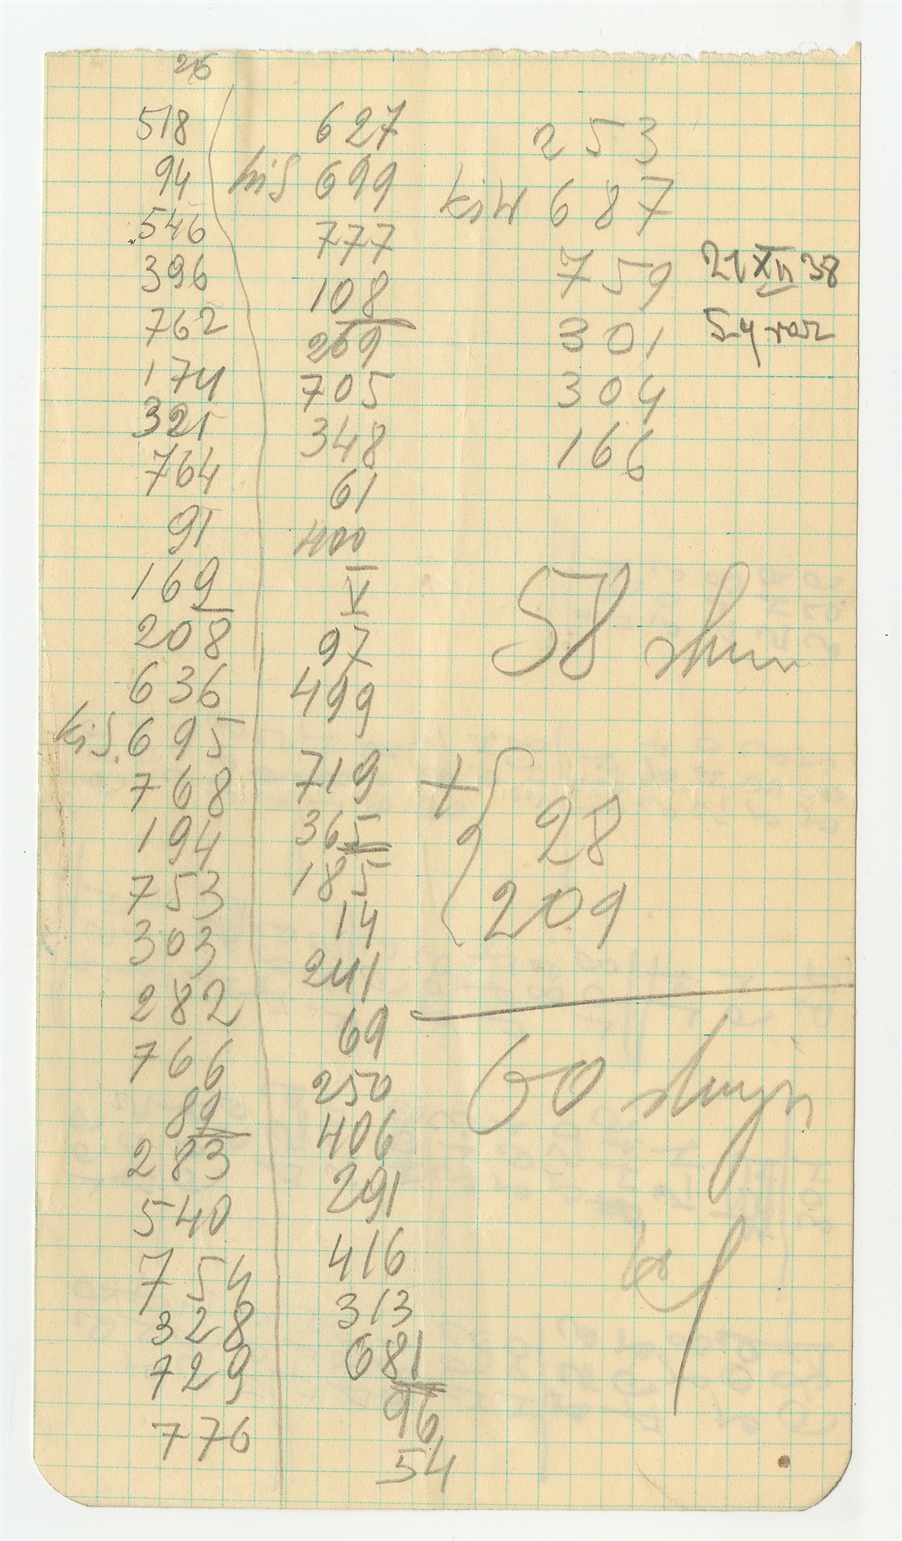 26
518
94
546
396
762
174
321
764
91
169
208
636
kiś. 695
768
194
753
303
282
766
89
283
540
754
328
729
776
627
kiś 699
777
108
269
705
348
61
400
V
97
499
719
365
185
14
241
69
250
406
291
416
313
681
96
54
253
687
759
301
304
166
21 XII 38
58
+ { 28
209
60